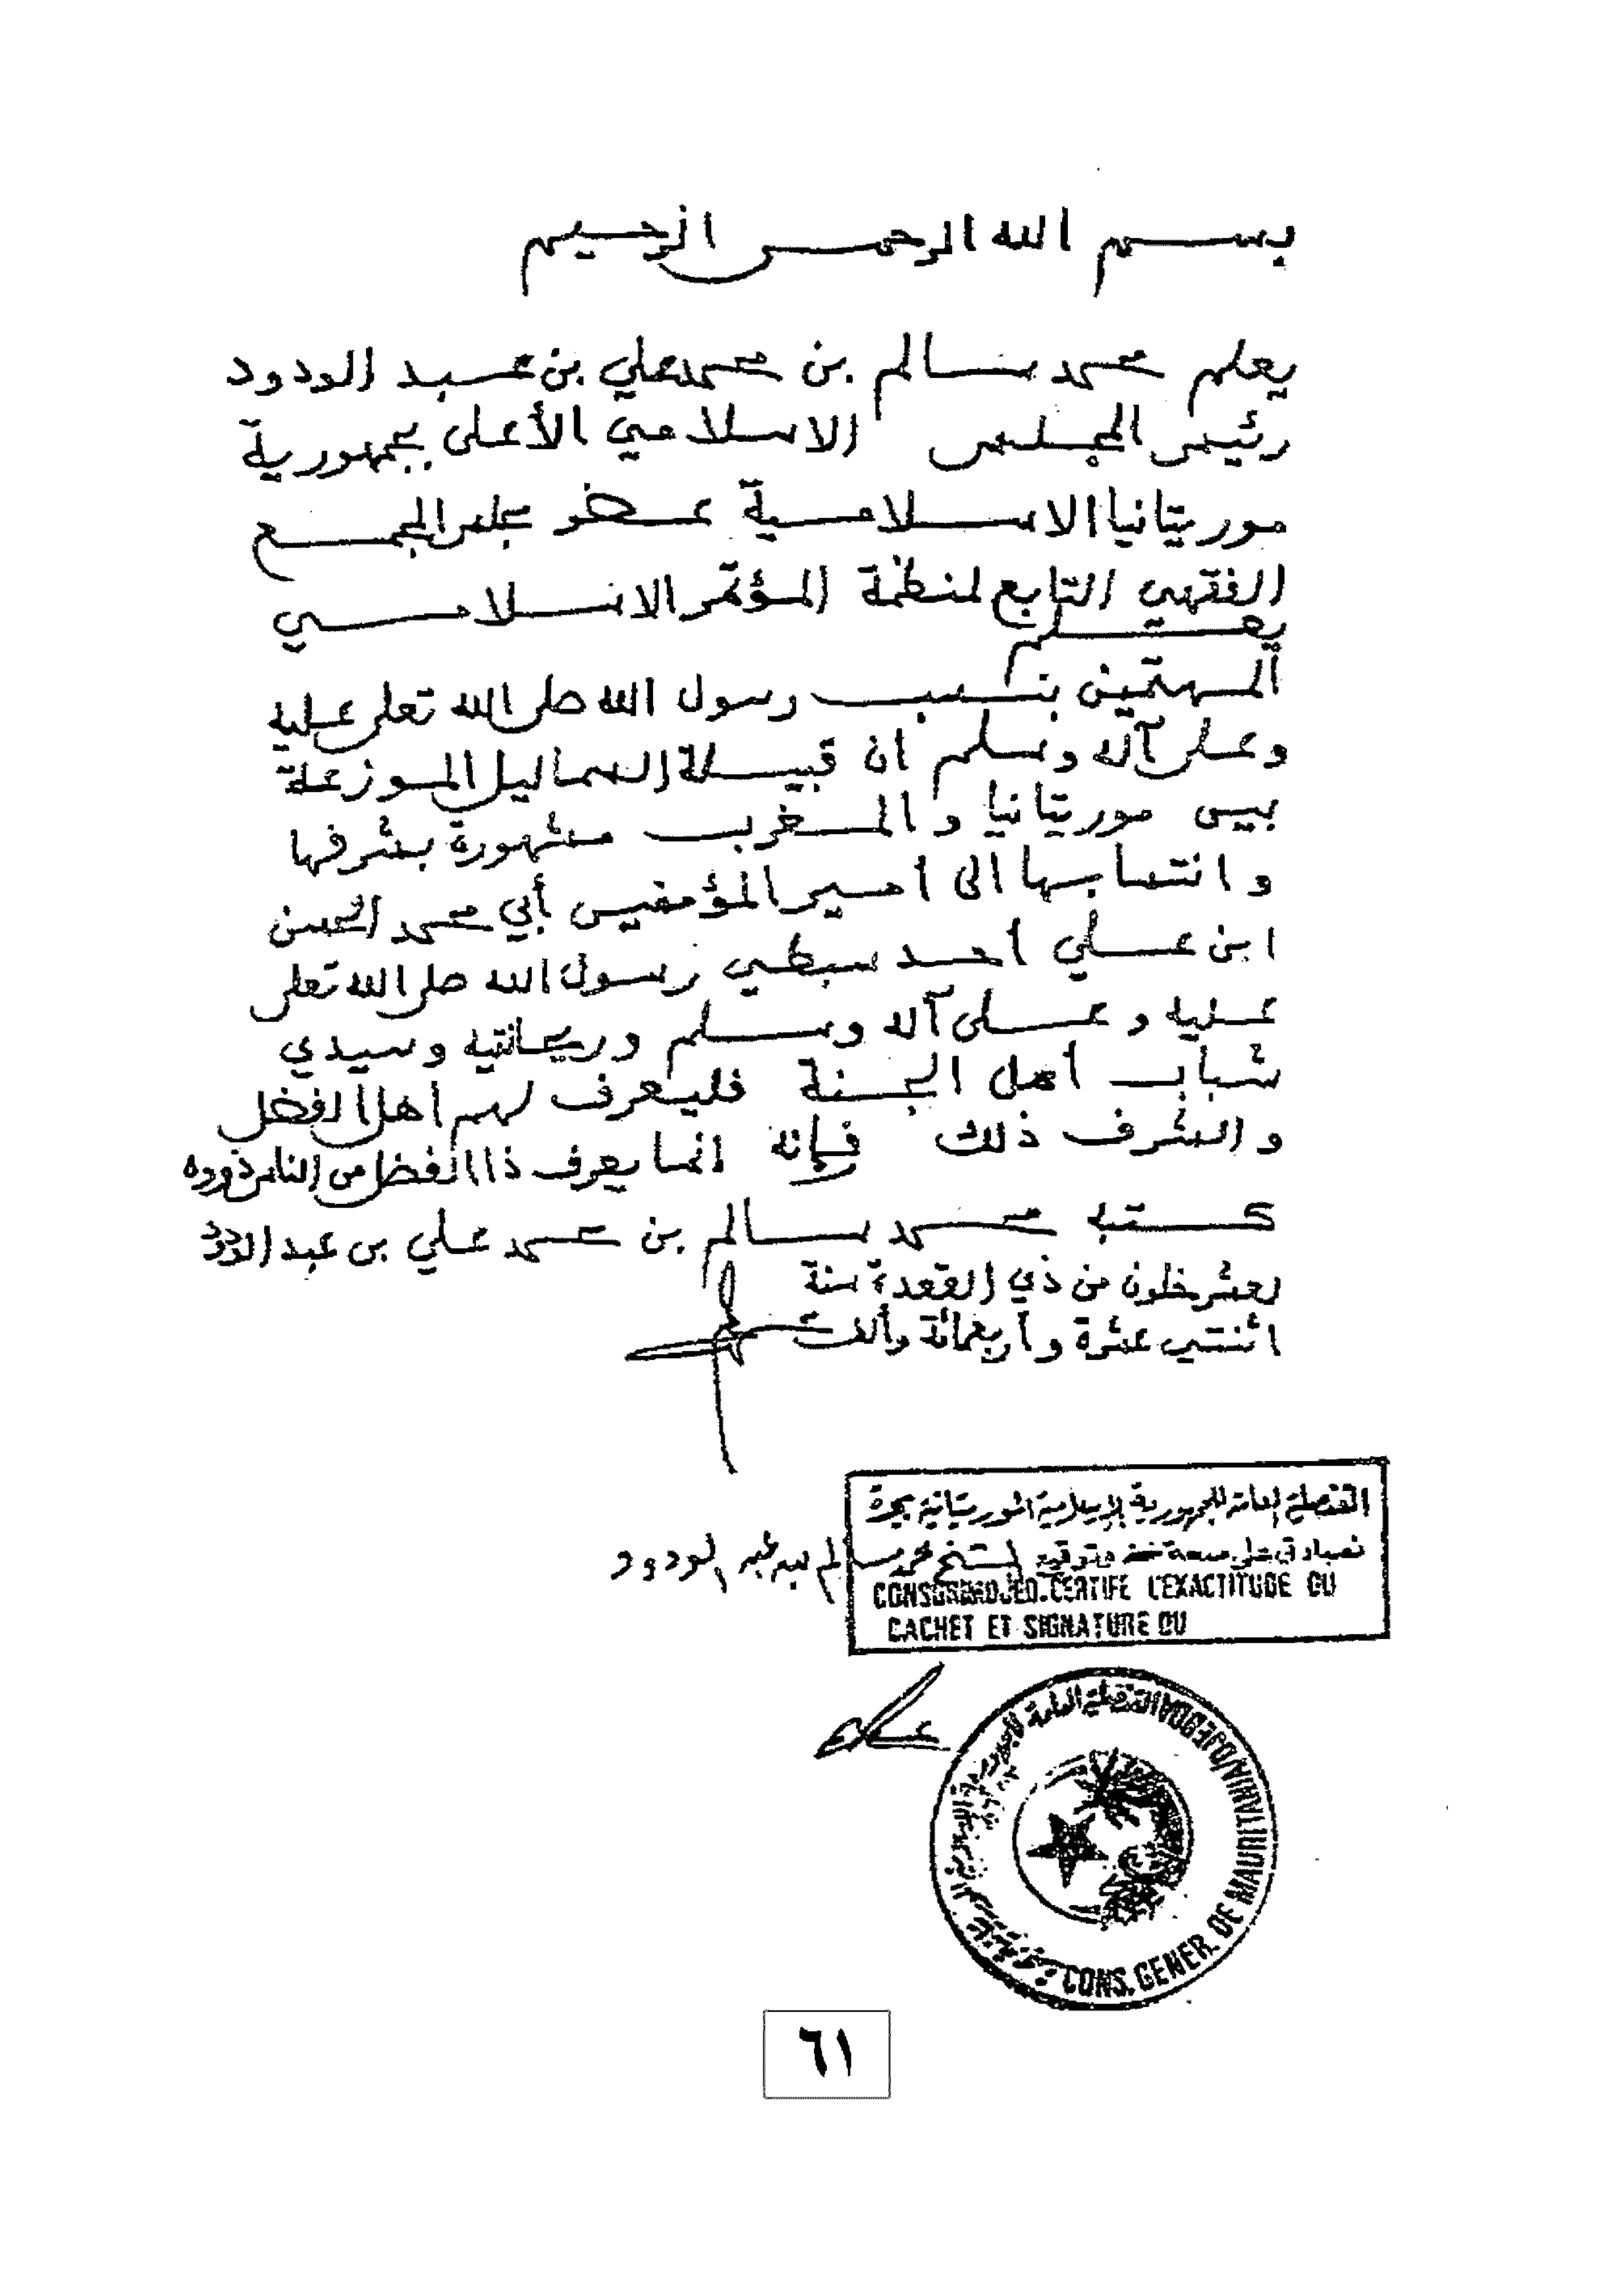 بسم الله الرحمن الرحيم
يعلم محمد سالم بن محمدعلي بن عبد الودود
رئيس المجلس الاسلامي الأعلى بجمهورية
موريتانيا الاسلامية عضو مجلس المجمع
الفقهي التابع لمنظمة المؤتمر الاسلامي
يعلم
المهتمين بنسب رسول الله صلى الله تعلى عليه
وعلى آله وسلم ان قبيلة السماليل الموزعة
بين موريتانيا والمغرب مشهورة بشرفها
وانتسابها الى امير المؤمنين أبي محمد الحسن
ابن علي أحد سبطي رسول الله صلى الله تعلى
عليه وعلى آله وسلم وريحانتيه وسيدي
شباب أهل الجنة فليعرف لهم اهل الفضل
والشرف ذلك فإنه انما يعرف ذا الفضل من الناس ذووه
كتبه محمد سالم بن محمد علي بن عبد الودود
لعشر خلون من ذي القعدة سنة
اثنتي عشرة واربعمائة وألف
القنصلية العامة للجمهورية الإسلامية الموريتانية بجدة
تصادق على صحة ختم وتوقيع الشيخ محمد سالم عبد الودود
CERTIFE L'EXACTITUDE DU
CACHET ET SIGNATURE DU
القنصلية العامة للجمهورية
CONS. GENER. DE MAURITANIA/DJEDDA
٦١